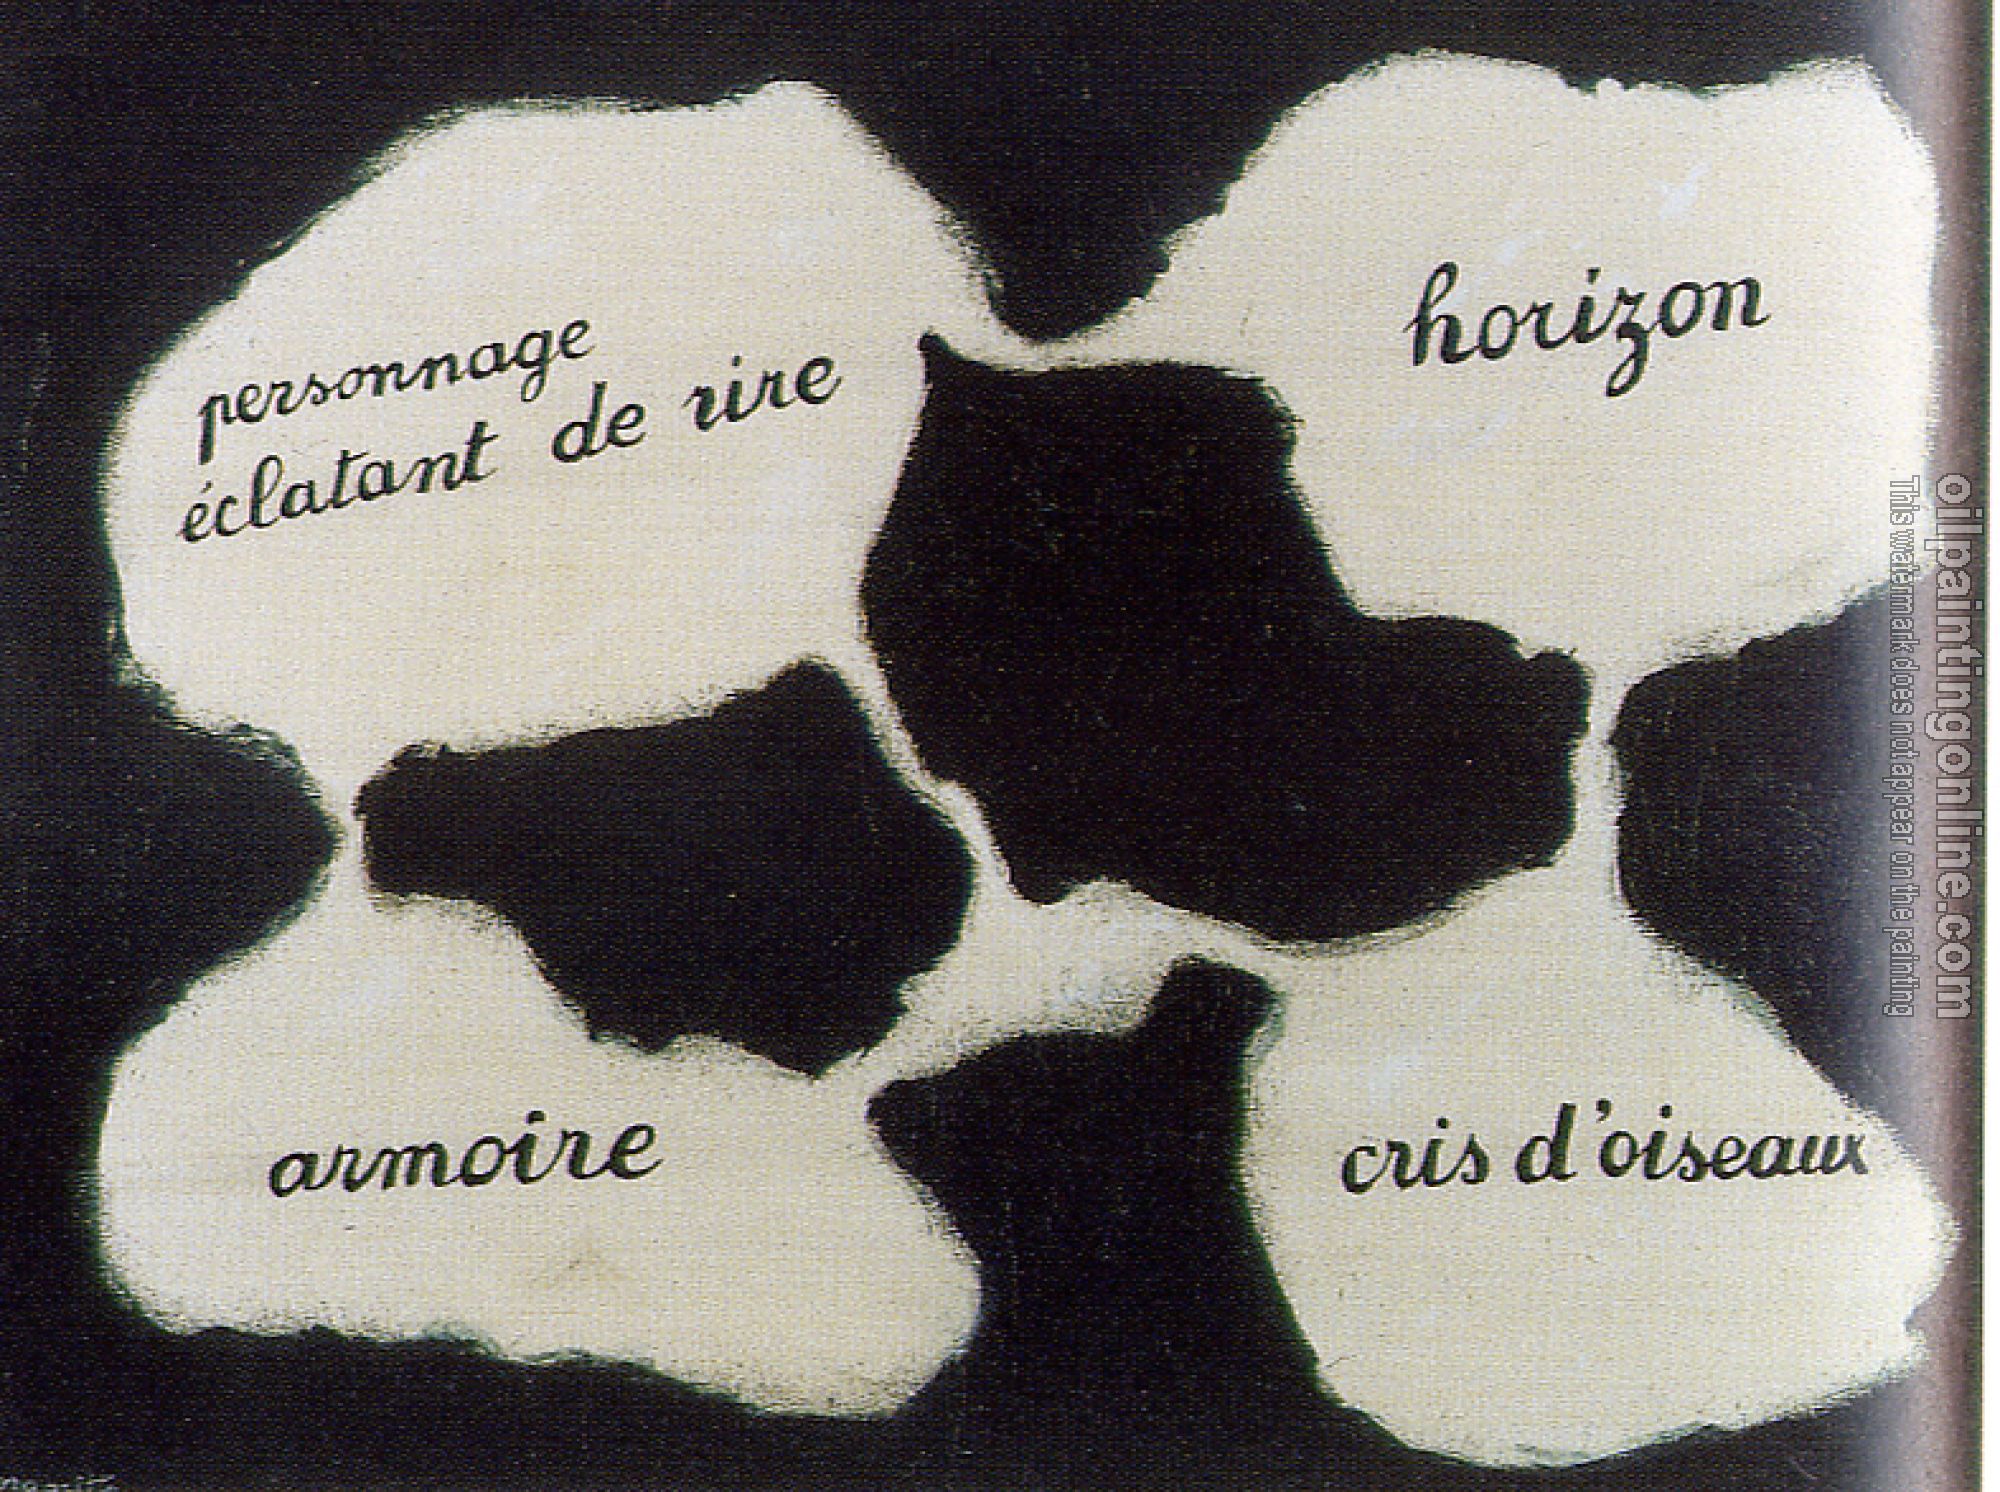 personnage
éclatant de rire
horizon
armoire
cris d'oiseaux
oilpaintingonline.com
This watermark does not appear on the painting